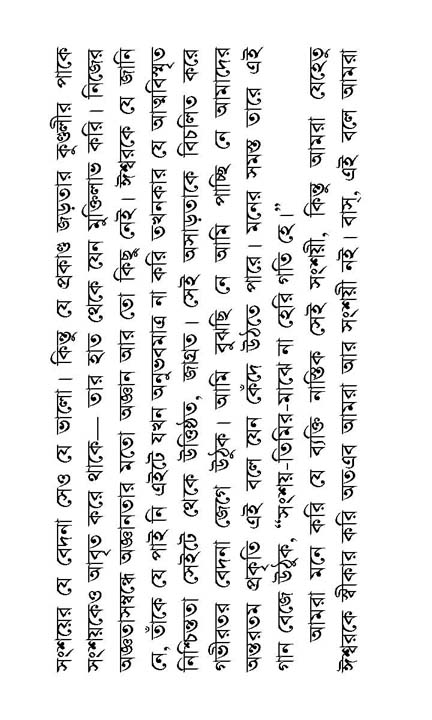 সংশয়ের যে বেদনা সেও যে ভালো। কিন্তু যে প্রকাণ্ড জড়তার কুণ্ডলীর পাকে
সংশয়কেও আবৃত করে থাকে— তার হাত থেকে যেন মুক্তিলাভ করি। নিজের
অজ্ঞতাসম্বন্ধে অজ্ঞানতার মতো অজ্ঞান আর তো কিছু নেই। ঈশ্বরকে যে জানি
নে, তাঁকে যে পাই নি এইটে যখন অনুভবমাত্র না করি তখনকার যে আত্মবিস্মৃত
নিশ্চিন্ততা সেইটে থেকে উত্তিষ্ঠত, জাগ্রত। সেই অসাড়তাকে বিচলিত করে
গভীরতর বেদনা জেগে উঠুক। আমি বুঝছি নে আমি পাচ্ছি নে আমাদের
অন্তরতম প্রকৃতি এই বলে যেন কেঁদে উঠতে পারে। মনের সমস্ত তারে এই
গান বেজে উঠুক, “সংশয়-তিমির-মাঝে না হেরি গতি হে।”
আমরা মনে করি যে ব্যক্তি নাস্তিক সেই সংশয়ী, কিন্তু আমরা যেহেতু
ঈশ্বরকে স্বীকার করি অতএব আমরা আর সংশয়ী নই। বাস্, এই বলে আমরা